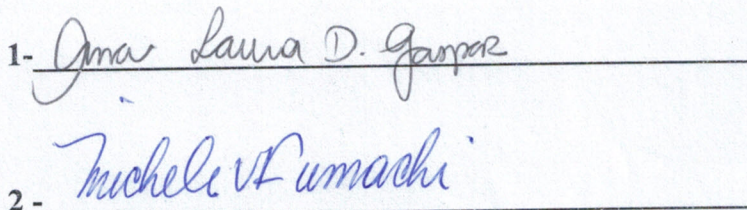 1- Ana Laura D. Gaspar
2 - Michele V Fumachi